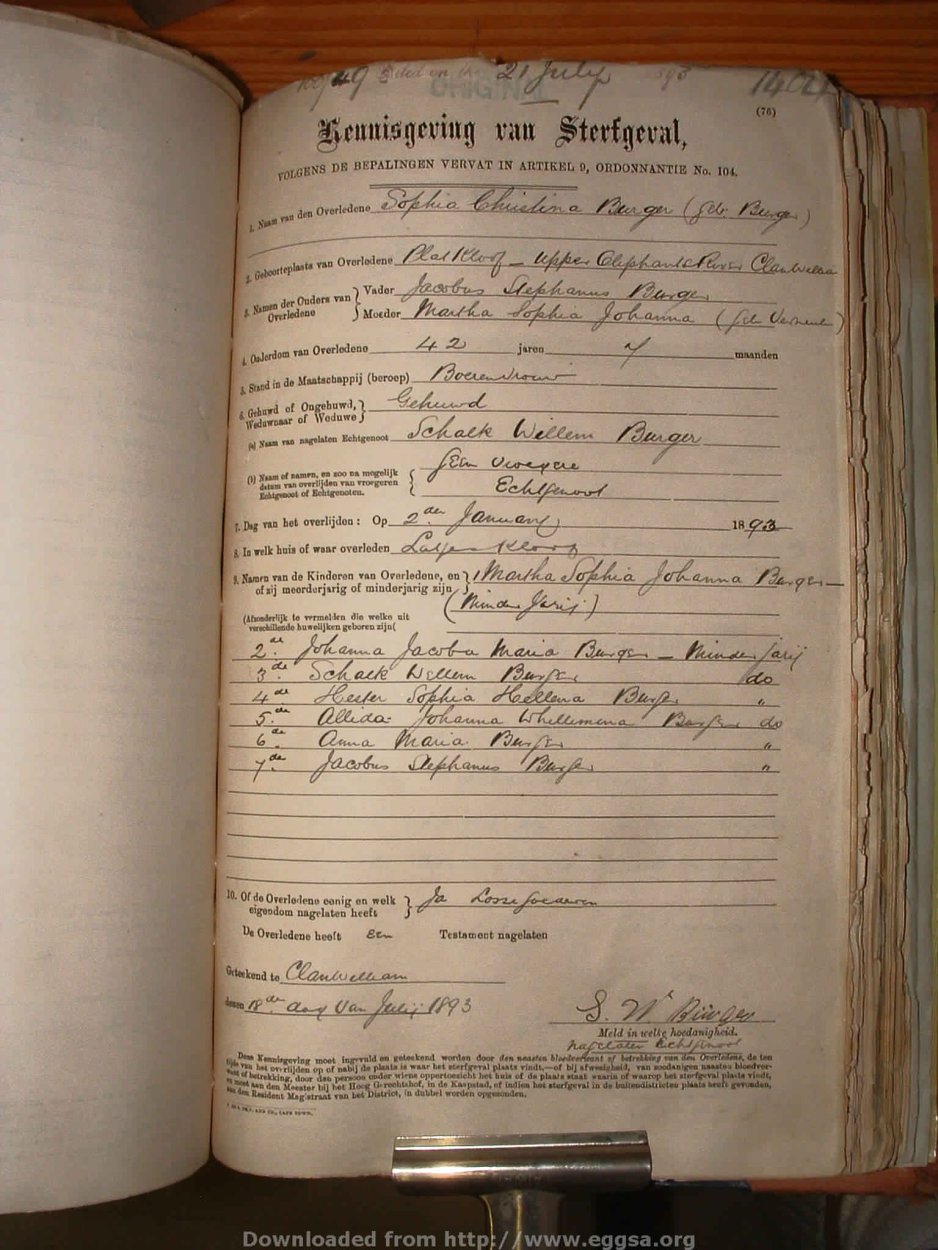 21 July
ORIGINAL
(76)
Kennisgeving van Sterfgeval,
VOLGENS DE BEPALINGEN VERVAT IN ARTIKEL 9, ORDONNANTIE No. 104.
1. Naam van den Overledene Sophia Christina Burger (geb. Burger)
2. Geboorteplaats van Overledene Plat Kloof – Upper Olephants River Clanwilliam
3. Namen der Ouders van Overledene } Vader Jacobus Stephanus Burger
Moeder Martha Sophia Johanna
4. Ouderdom van Overledene 42 jaren 7 maanden
5. Stand in de Maatschappij (beroep) Boerenvrouw
6. Gehuwd of Ongehuwd, Weduwnaar of Weduwe } Gehuwd
(a) Naam van nagelaten Echtgenoot Schalk Willem Burger
(b) Naam of namen, en zoo na mogelijk datum van overlijden van vroegeren Echtgenoot of Echtgenoten. { Geen vroegere
Echtgenoot
7. Dag van het overlijden: Op 2den January 1893
8. In welk huis of waar overleden Kloof
9. Namen van de Kinderen van Overledene, en of zij meerderjarig of minderjarig zijn } 1 Martha Sophia Johanna Burger –
(Minder Jarij)
(Afzonderlijk te vermelden die welke uit verschillende huwelijken geboren zijn(
2de Johanna Jacoba Maria Burger – Minder jarij
3de Schalk Willem Burger do
4de Hester Sophia Hellena Burger "
5de Allida Johanna Whillemina Burger do
6de Anna Maria Burger "
7de Jacobus Stephanus Burger "
10. Of de Overledene eenig en welk eigendom nagelaten heeft } Ja Losse goederen
De Overledene heeft een Testament nagelaten
Geteekend te Clanwilliam
dezen 18de dag van Julij 1893
S. W. Burger
Meld in welke hoedanigheid.
nagelaten Echtgenoot
Deze Kennisgeving moet ingevuld en geteekend worden door den naasten bloedverwant of betrekking van den Overledene, de ten
tijde van het overlijden op of nabij de plaats is waar het sterfgeval plaats vindt,—of bij afwezigheid, van zoodanigen naasten bloedver-
want of betrekking, door den persoon onder wiens oppertoezicht het huis of de plaats staat waarin of waarop het sterfgeval plaats vindt,
en moet aan den Meester bij het Hoog Gerechtshof, in de Kaapstad, of indien het sterfgeval in de buitendistricten plaats heeft gevonden,
aan den Resident Magistraat van het District, in dubbel worden opgezonden.
Downloaded from http://www.eggsa.org